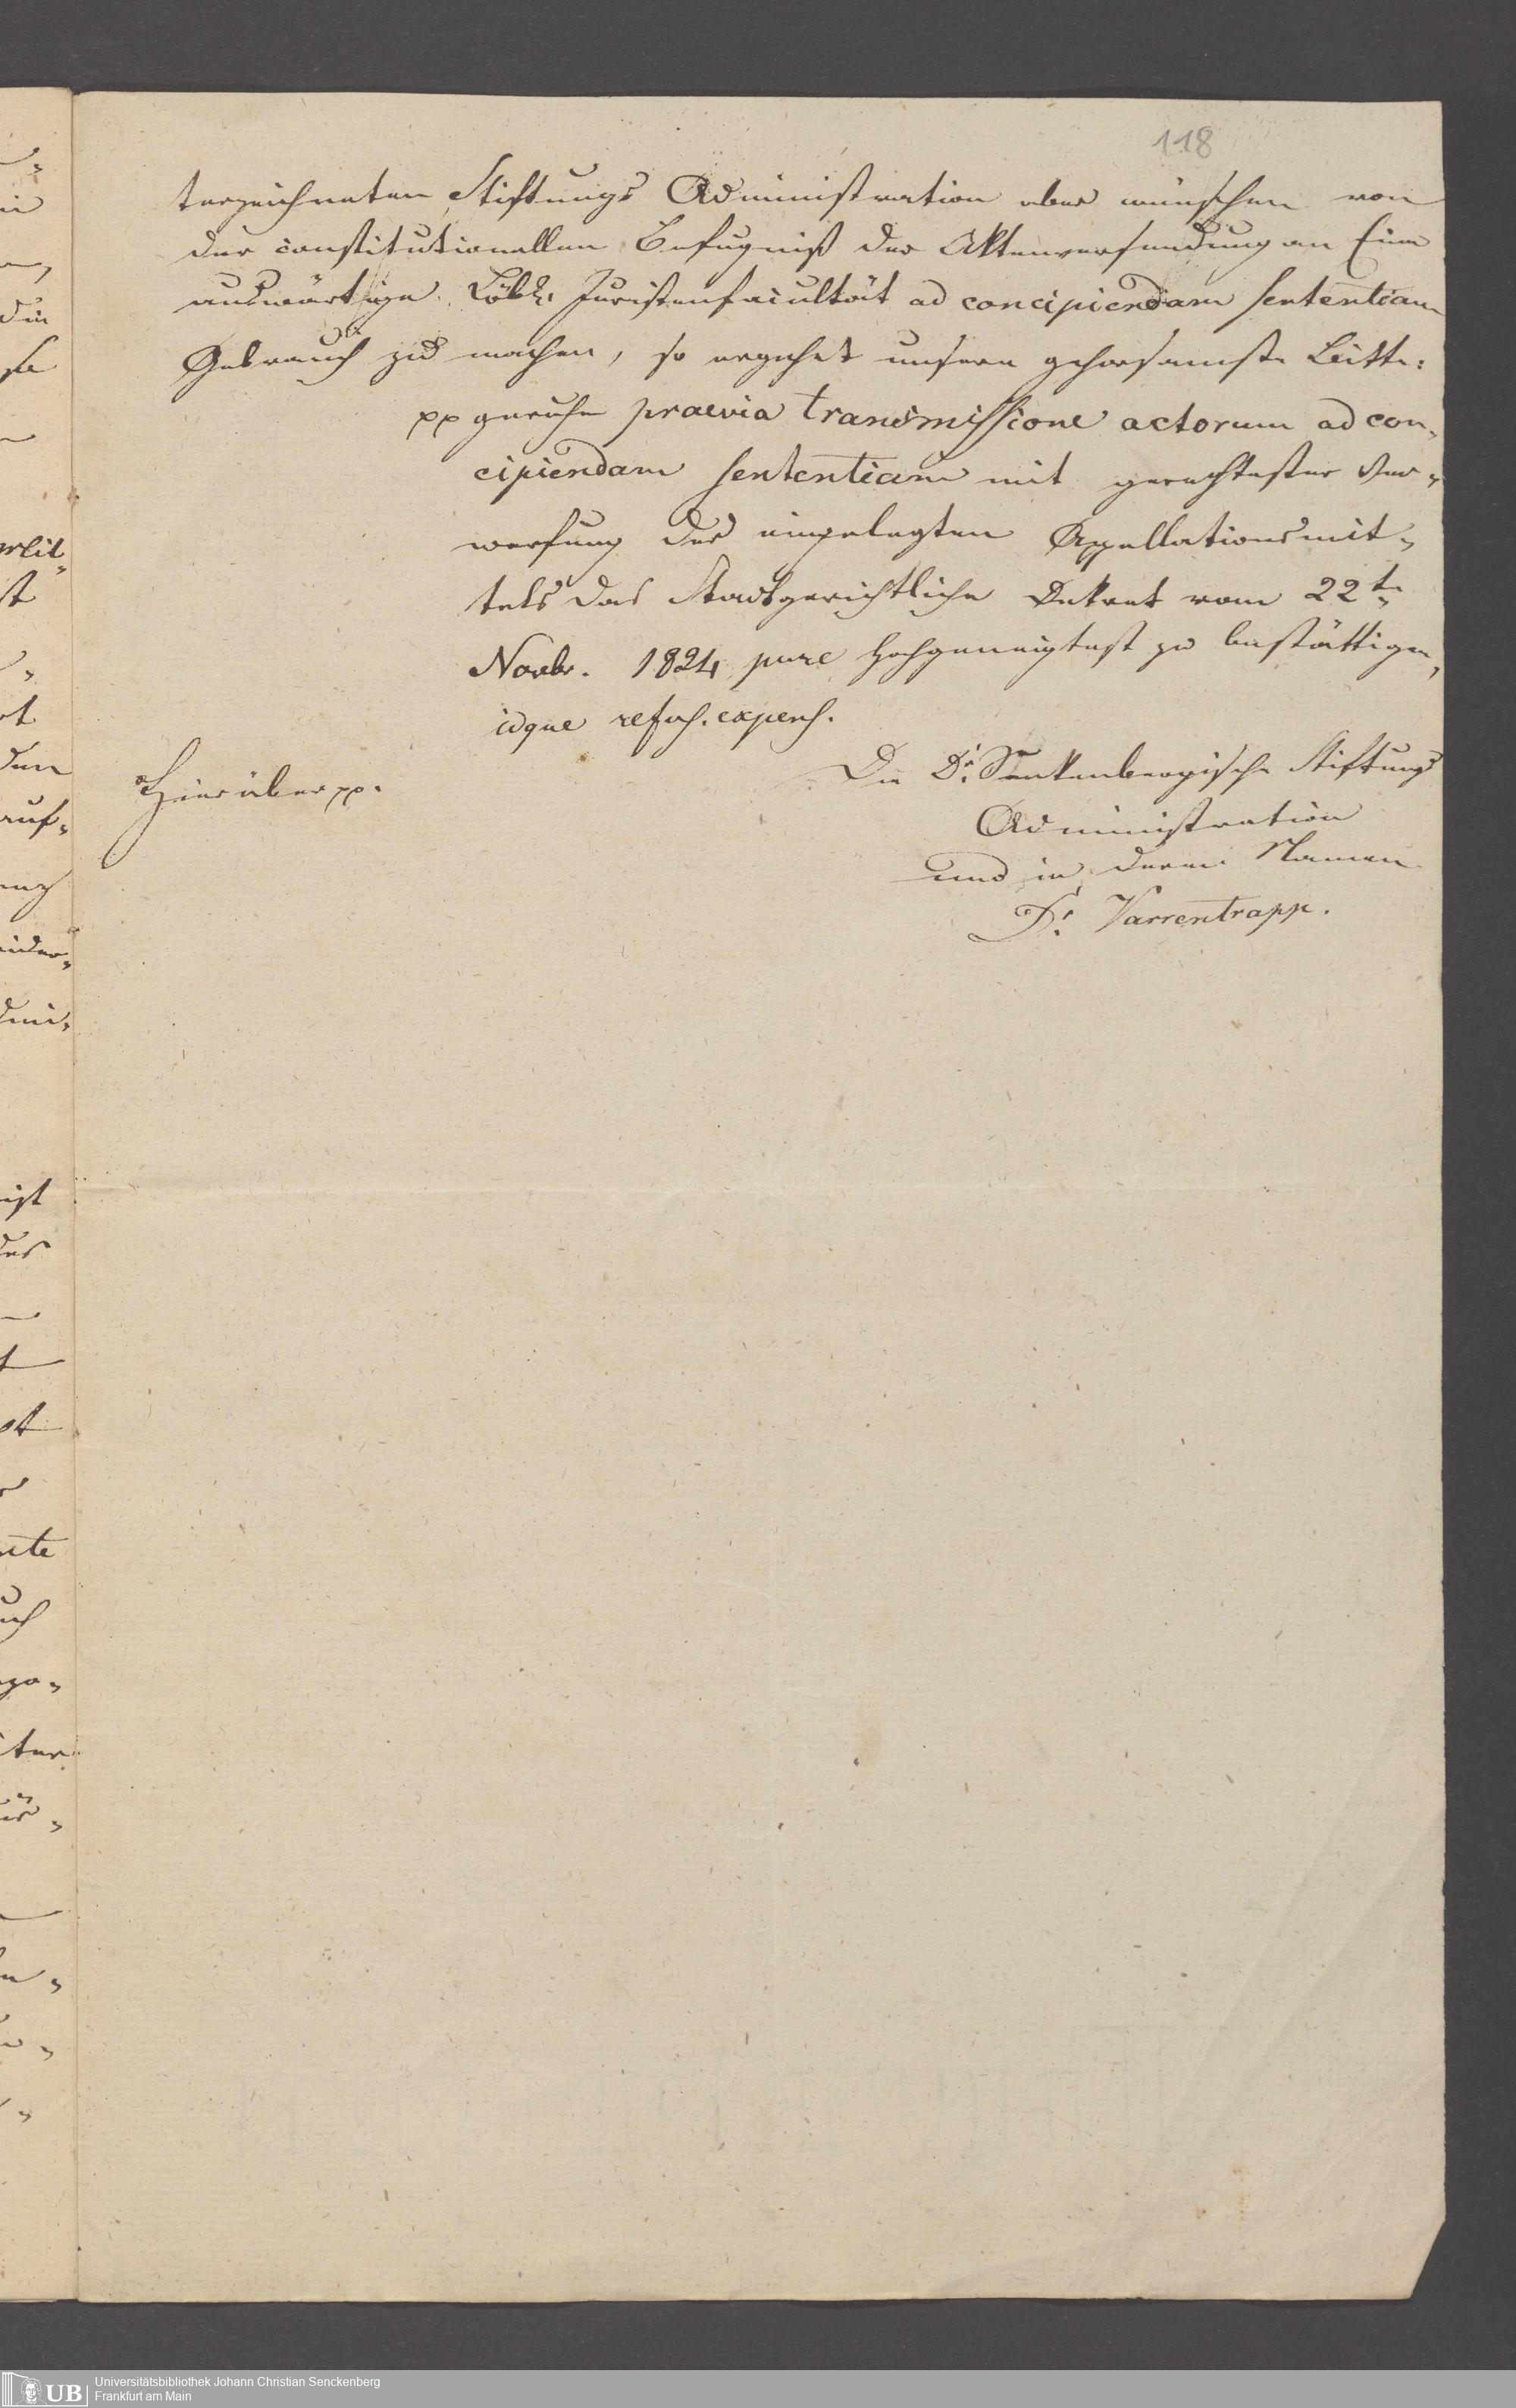 118
terzeichneten Stiftungs Administration aber wünschen von
der constitutionellen Befugniß der Aktenversendung an Eine
auswärtige Löbl. Juristenfacultät ad concipiendam sententiam
Gebrauch zu machen, so ergehet unsere gehorsamste Bitte:
pp geruhe praevia transmissione actorum ad con-
cipiendam sententiam mit gerechtester Ver-
werfung des eingelegten Appellationsmit-
tels das Stadtgerichtliche Dekret vom 22te
Novbr. 1824 pure hochgeneigtest zu bestättigen,
idque refus. expens.
Hierüber pp.
Die Dr. Senkenbergische Stiftungs
Administration
und in deren Namen
Dr. Varrentrapp.
UB
Universitätsbibliothek Johann Christian Senckenberg
Frankfurt am Main